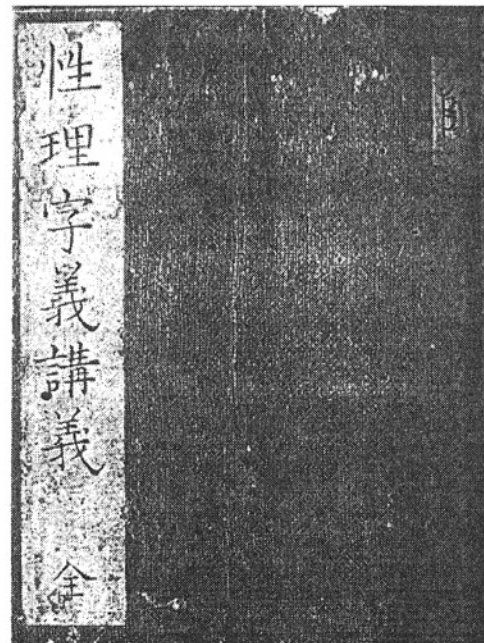 性理字義講義 全